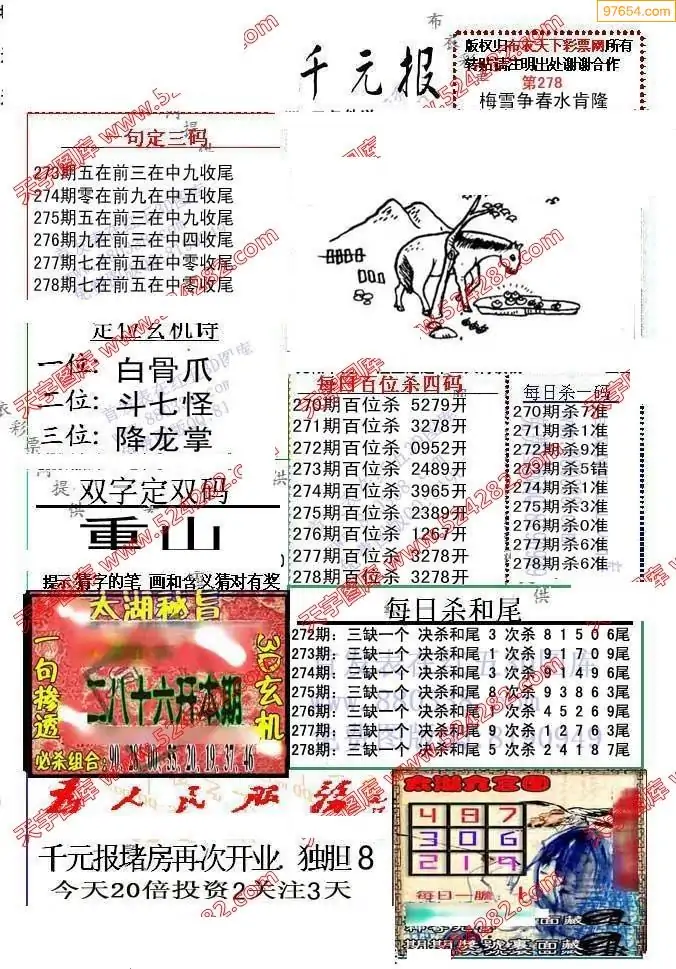 97654.com
千元报
版权归布衣天下彩票网所有
转贴请注明出处谢谢合作
第278
梅雪争春水肯隆
一句定三码
273期五在前三在中九收尾
274期零在前九在中五收尾
275期五在前三在中九收尾
276期九在前三在中四收尾
277期七在前五在中零收尾
278期七在前五在中零收尾
定位玄机诗
一位: 白骨爪
二位: 斗七怪
三位: 降龙掌
每日百位杀四码
270期百位杀 5279开
271期百位杀 3278开
272期百位杀 0952开
273期百位杀 2489开
274期百位杀 3965开
275期百位杀 2389开
276期百位杀 1267开
277期百位杀 3278开
278期百位杀 3278开
每日杀一码
270期杀7准
271期杀1准
272期杀9准
273期杀5错
274期杀1准
275期杀3准
276期杀0准
277期杀6准
278期杀6准
双字定双码
重山
提示猜字的笔 画和含义猜对有奖
太湖秘旨
一句掺透
3D玄机
二八十六开本期
必杀组合:90,28,00,55,20,19,37,46
每日杀和尾
272期: 三缺一个 决杀和尾 3 次杀 8 1 5 0 6尾
273期: 三缺一个 决杀和尾 1 次杀 9 1 7 0 9尾
274期: 三缺一个 决杀和尾 1 次杀 9 1 4 9 6尾
275期: 三缺一个 决杀和尾 8 次杀 9 3 8 6 3尾
276期: 三缺一个 决杀和尾 1 次杀 4 5 2 6 9尾
277期: 三缺一个 决杀和尾 9 次杀 1 2 7 6 3尾
278期: 三缺一个 决杀和尾 5 次杀 2 4 1 8 7尾
为人民服务
千元报堵房再次开业 独胆 8
今天20倍投资2关注3天
4 8 7
3 0 6
2 1 9
每日一胆:
期期奖号裏面藏
天宇图库 www.524282.com